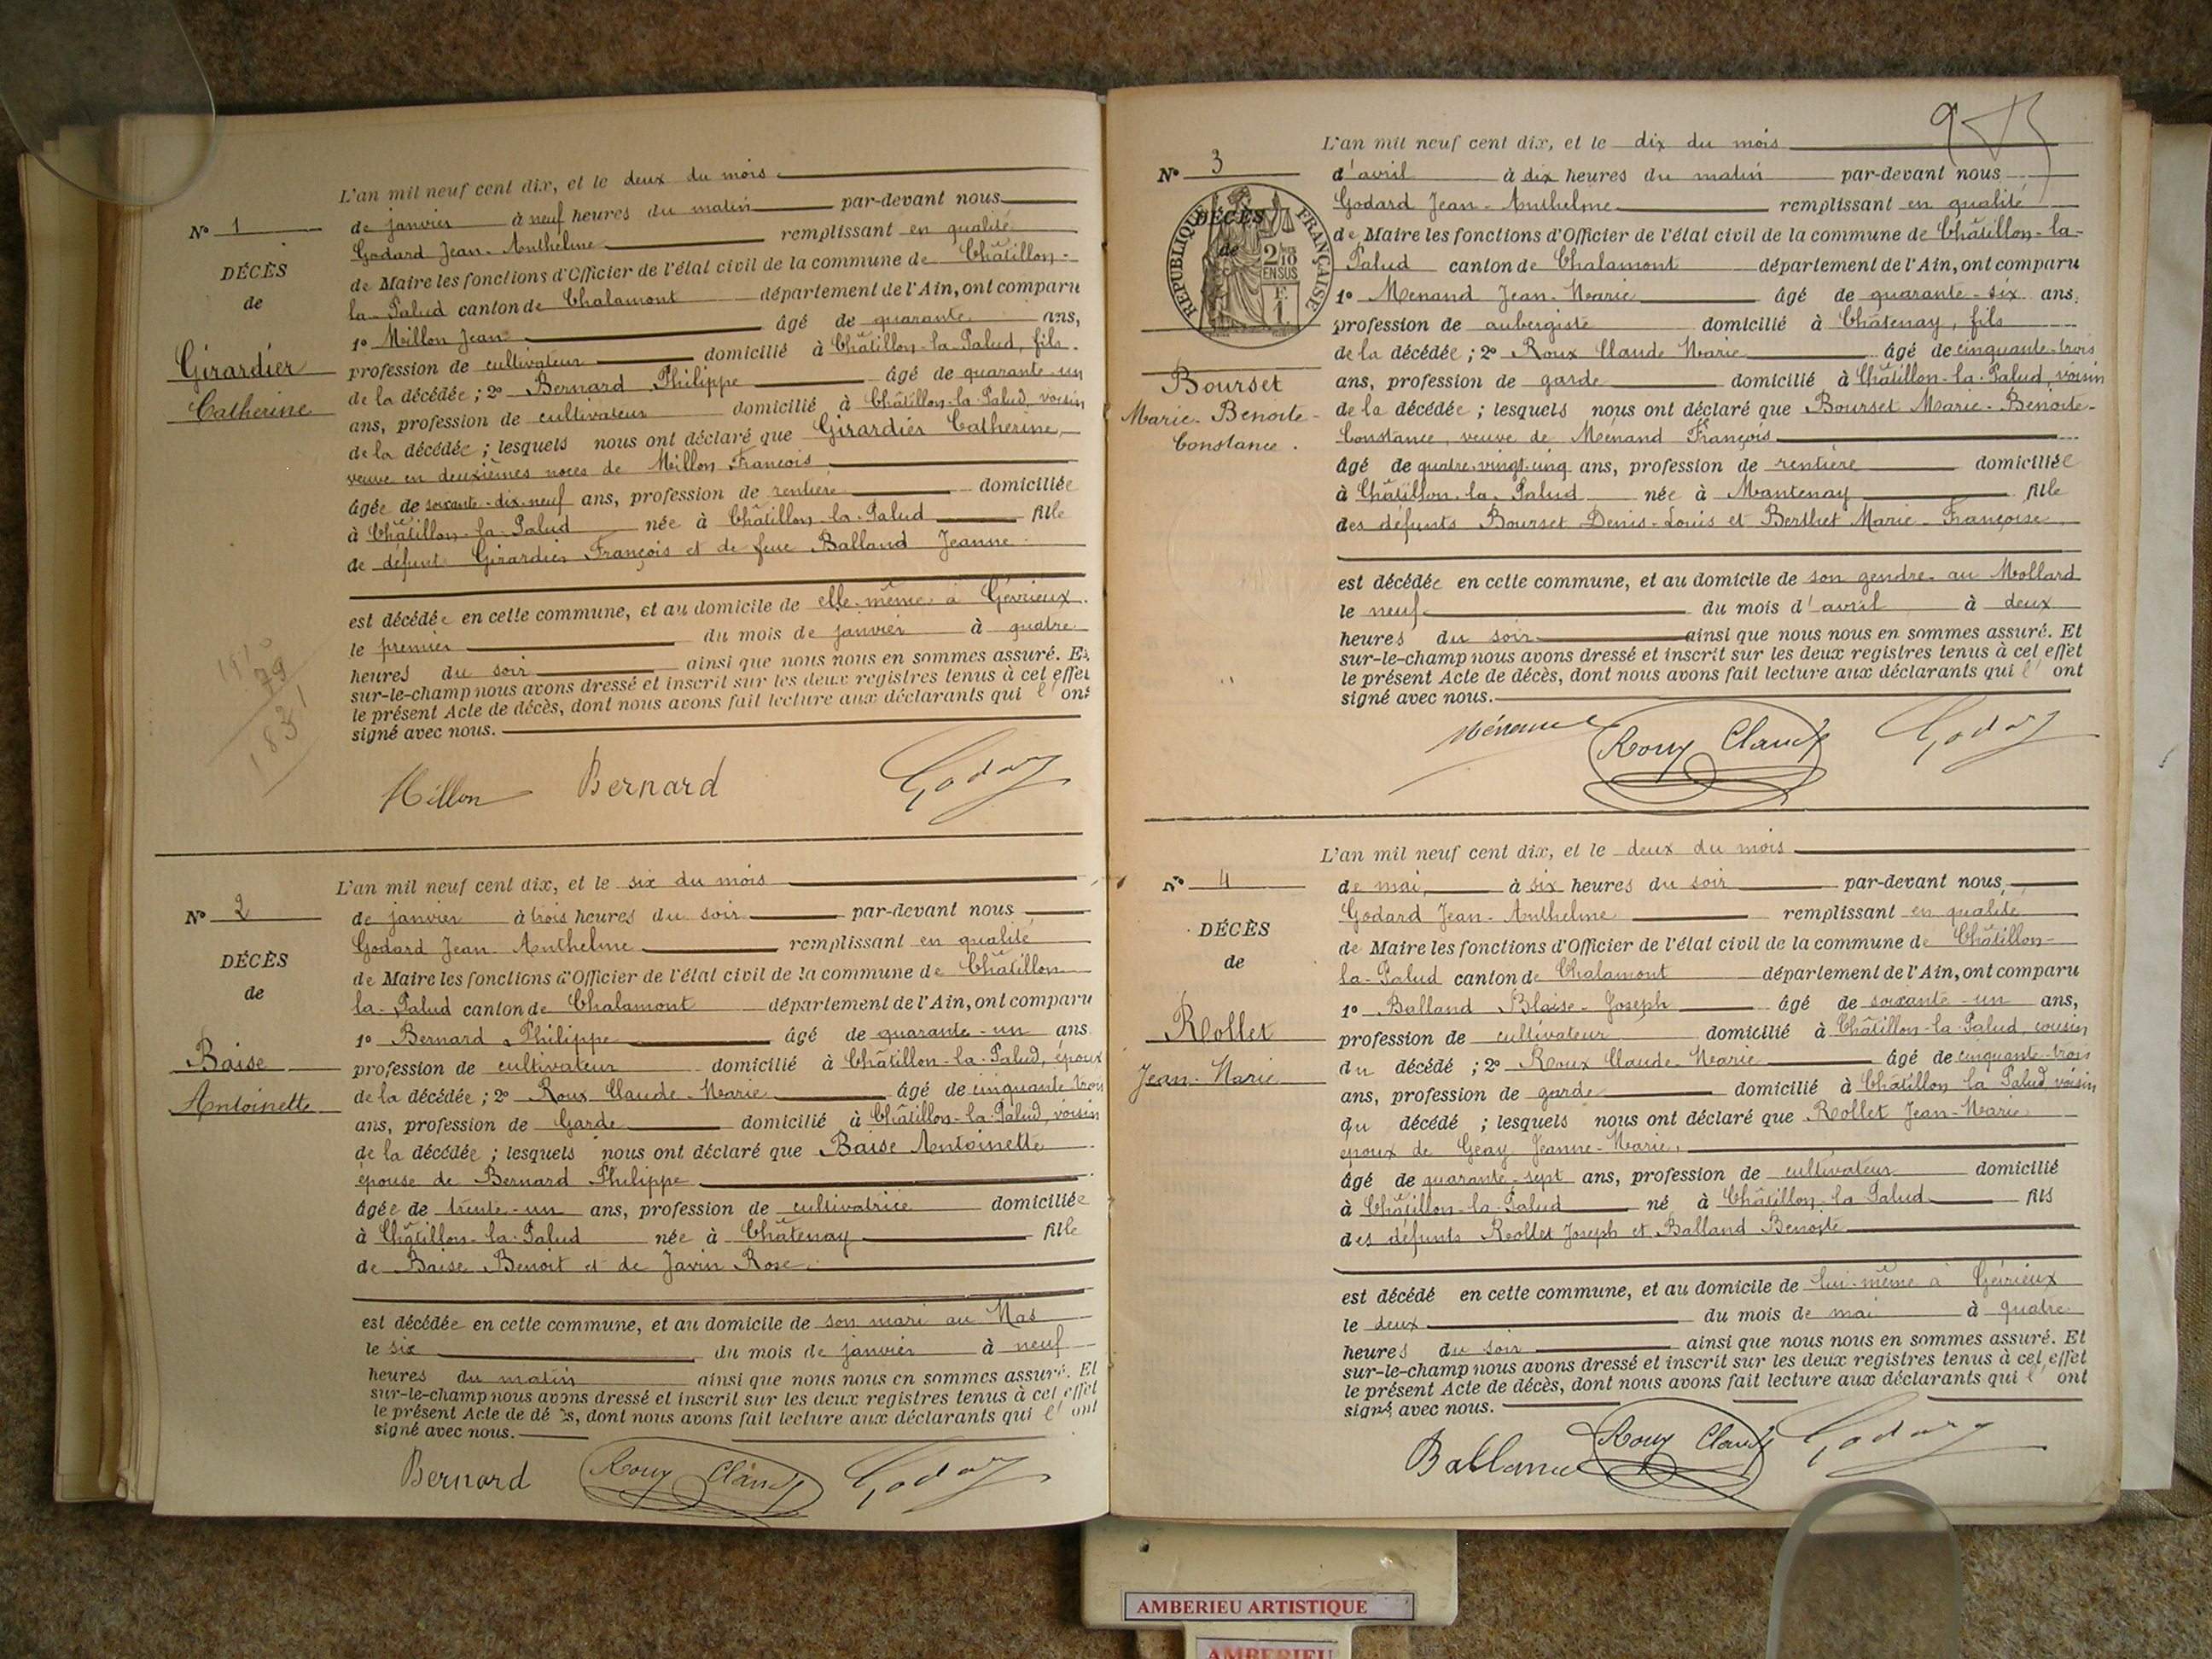 L'an mil neuf cent dix, et le deux du mois
N° 1
de janvier à neuf heures du matin par-devant nous
Godard Jean-Anthelme remplissant en qualité
DÉCÈS
de Maire les fonctions d'Officier de l'état civil de la commune de Châtillon-
de
la-Palud canton de Chalamont département de l'Ain, ont comparu
1° Millon Jean âgé de quarante ans,
Girardier
profession de cultivateur domicilié à Châtillon-la-Palud, fils
Catherine
de la décédée ; 2° Bernard Philippe âgé de quarante-un
ans, profession de cultivateur domicilié à Châtillon-la-Palud, voisin
de la décédée ; lesquels nous ont déclaré que Girardier Catherine,
veuve en deuxièmes noces de Millon François
âgée de soixante-dix-neuf ans, profession de rentière domiciliée
à Châtillon-la-Palud née à Châtillon-la-Palud fille
de défunt Girardier François et de feue Balland Jeanne
est décédée en cette commune, et au domicile de elle-même à Gévrieux
le premier du mois de janvier à quatre
heures du soir ainsi que nous nous en sommes assuré. Et
sur-le-champ nous avons dressé et inscrit sur les deux registres tenus à cet effet
le présent Acte de décès, dont nous avons fait lecture aux déclarants qui l'ont
signé avec nous.
1910
79
1831
Millon Bernard Godard
L'an mil neuf cent dix, et le six du mois
N° 2
de janvier à trois heures du soir par-devant nous
Godard Jean-Anthelme remplissant en qualité
DÉCÈS
de Maire les fonctions d'Officier de l'état civil de la commune de Châtillon
de
la-Palud canton de Chalamont département de l'Ain, ont comparu
1° Bernard Philippe âgé de quarante-un ans
Baise
profession de cultivateur domicilié à Châtillon-la-Palud, époux
Antoinette
de la décédée ; 2° Roux Claude-Marie âgé de cinquante trois
ans, profession de Garde domicilié à Châtillon-la-Palud, voisin
de la décédée ; lesquels nous ont déclaré que Baise Antoinette
épouse de Bernard Philippe
âgée de trente-un ans, profession de cultivatrice domiciliée
à Châtillon-la-Palud née à Châtenay fille
de Baise Benoit et de Javin Rose
est décédée en cette commune, et au domicile de son mari au Mas
le six du mois de janvier à neuf
heures du matin ainsi que nous nous en sommes assuré. Et
sur-le-champ nous avons dressé et inscrit sur les deux registres tenus à cet effet
le présent Acte de décès, dont nous avons fait lecture aux déclarants qui l'ont
signé avec nous.
Bernard Roux Claude Godard
L'an mil neuf cent dix, et le dix du mois
N° 3
d'avril à dix heures du matin par-devant nous
Godard Jean-Anthelme remplissant en qualité
DÉCÈS
de
RÉPUBLIQUE FRANÇAISE
2/10 EN SUS
F. 1
de Maire les fonctions d'Officier de l'état civil de la commune de Châtillon-la-
Palud canton de Chalamont département de l'Ain, ont comparu
1° Menand Jean-Marie âgé de quarante-six ans,
profession de aubergiste domicilié à Châtenay, fils
de la décédée ; 2° Roux Claude Marie âgé de cinquante-trois
Bourset
ans, profession de garde domicilié à Châtillon-la-Palud, voisin
Marie-Benoite-
de la décédée ; lesquels nous ont déclaré que Bourset Marie-Benoite-
Constance.
Constance, veuve de Ménand François
âgé de quatre-vingt-cinq ans, profession de rentière domiciliée
à Châtillon-la-Palud née à Mantenay fille
des défunts Bourset Denis-Louis et Berthet Marie-Françoise
est décédée en cette commune, et au domicile de son gendre au Mollard
le neuf du mois d'avril à deux
heures du soir ainsi que nous nous en sommes assuré. Et
sur-le-champ nous avons dressé et inscrit sur les deux registres tenus à cet effet
le présent Acte de décès, dont nous avons fait lecture aux déclarants qui l'ont
signé avec nous.
Ménand Roux Claude Godard
L'an mil neuf cent dix, et le deux du mois
N° 4
de mai à six heures du soir par-devant nous,
Godard Jean-Anthelme remplissant en qualité
DÉCÈS
de Maire les fonctions d'Officier de l'état civil de la commune de Châtillon-
de
la-Palud canton de Chalamont département de l'Ain, ont comparu
1° Balland Blaise-Joseph âgé de soixante-un ans,
Rollet
profession de cultivateur domicilié à Châtillon-la-Palud, cousin
Jean-Marie
du décédé ; 2° Roux Claude-Marie âgé de cinquante-trois
ans, profession de garde domicilié à Châtillon la Palud voisin
du décédé ; lesquels nous ont déclaré que Rollet Jean-Marie
époux de Geay Jeanne-Marie,
âgé de quarante-sept ans, profession de cultivateur domicilié
à Châtillon-la-Palud né à Châtillon-la-Palud fils
des défunts Rollet Joseph et Balland Benoite
est décédé en cette commune, et au domicile de lui-même à Gévrieux
le deux du mois de mai à quatre
heures du soir ainsi que nous nous en sommes assuré. Et
sur-le-champ nous avons dressé et inscrit sur les deux registres tenus à cet effet
le présent Acte de décès, dont nous avons fait lecture aux déclarants qui l'ont
signé avec nous.
Balland Roux Claude Godard
AMBERIEU ARTISTIQUE
AMBERIEU